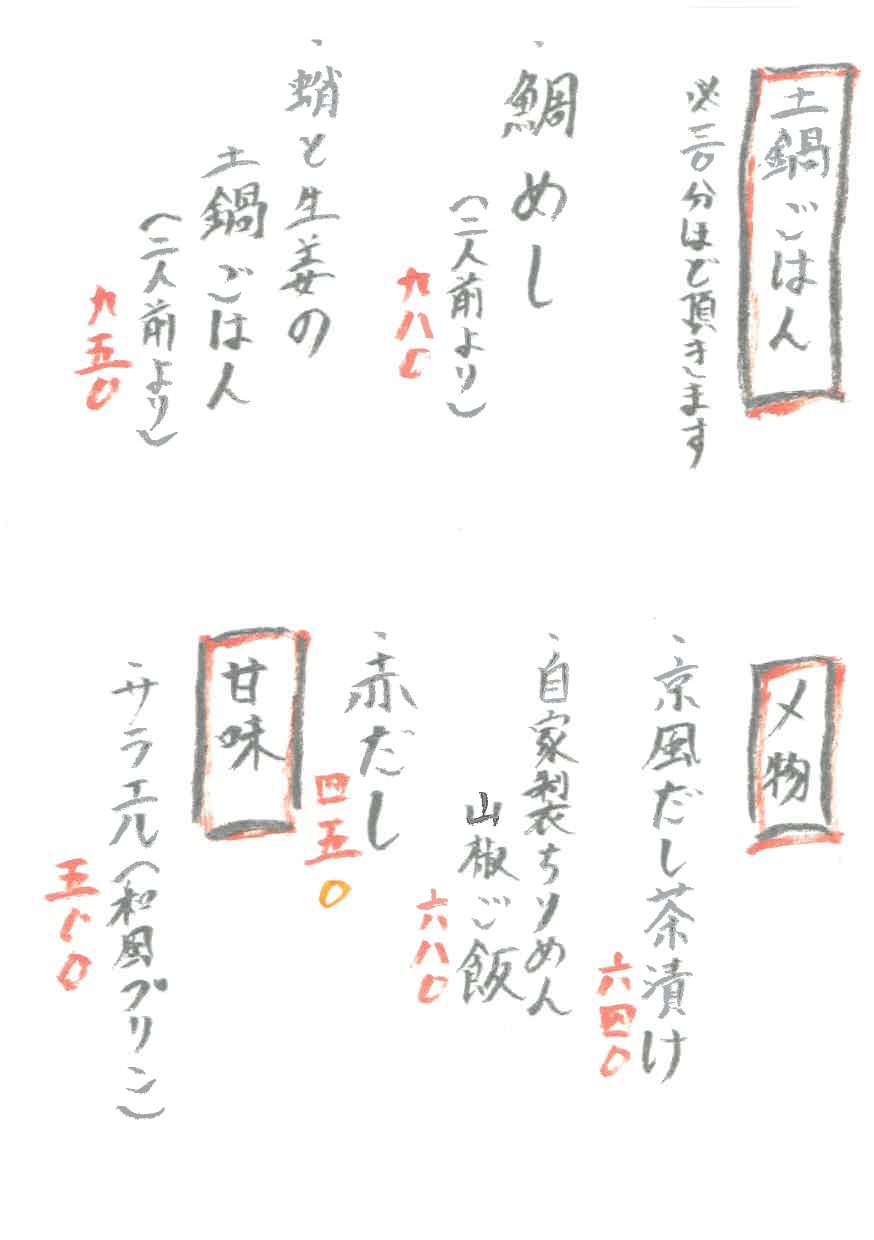 土鍋ごはん
※三〇分ほど頂きます
・鯛めし
(二人前より)
九八〇
・蛸と生姜の
土鍋ごはん
(二人前より)
九五〇
〆物
・京風だし茶漬け
六四〇
・自家製ちりめん
山椒ご飯
六八〇
・赤だし
四五〇
甘味
・サラエル(和風プリン)